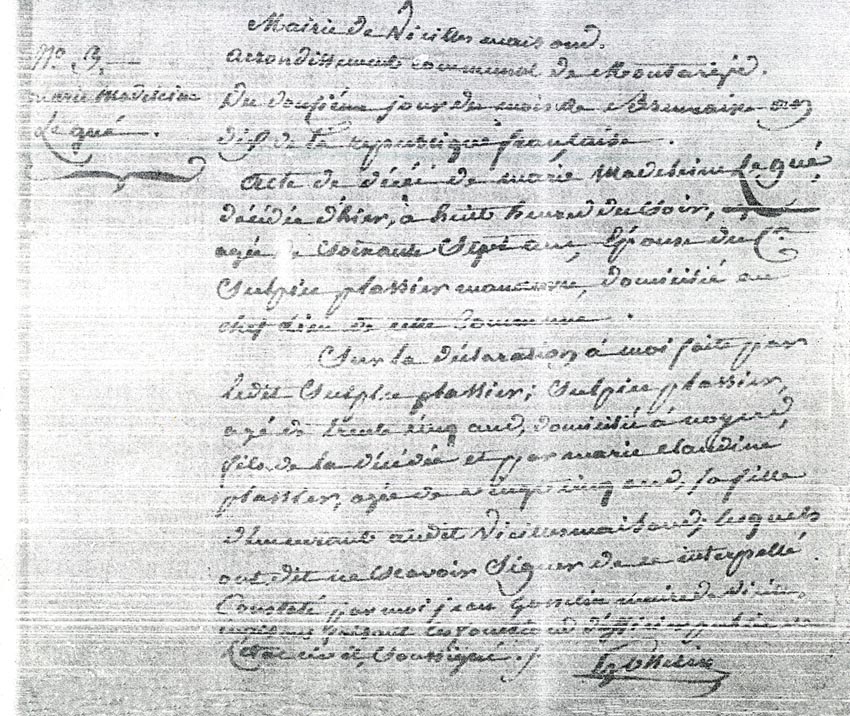 Mairie de Vieilles maisons.
N° 3.
arrondissement communal de Montargis.
marie Madeleine
Legué.
Du douzième jour du mois de Brumaire an
dix de la republique française.
Acte de décès de marie Madeleine Legué
décédée d'hier, à huit heures du soir,
agée de soixante Sept ans, Epouse du Cn.
Sulpice plassier manœuvre, domicilié au
chef lieu de cette Commune.
Sur la déclaration à moi faite par
ledit Sulpice plassier; Sulpice plassier,
agé de trente cinq ans, domicilié à noyers,
fils de la décédée et par marie claudine
plassier, agée de vingt cinq ans, sa fille
demeurant audit Vieillesmaisons; lesquels
ont dit ne Scavoir Signer de ce interpellé.
Constaté par moi jean maire de
faisant les fonctions d'officier public de
l'Etat civil, Soussigné.